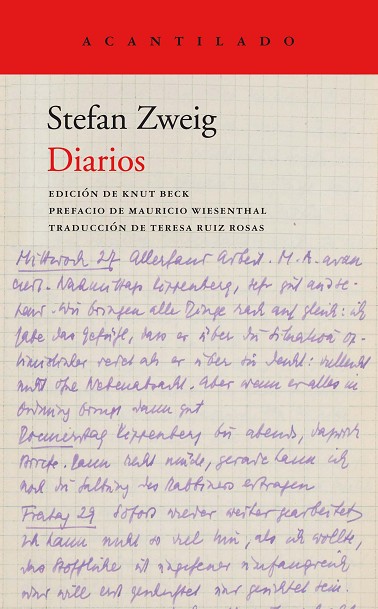 ACANTILADO
Stefan Zweig
Diarios
EDICIÓN DE KNUT BECK
PREFACIO DE MAURICIO WIESENTHAL
TRADUCCIÓN DE TERESA RUIZ ROSAS
Mittwoch 27 Allerhand Arbeit. M. A. avan
ciert. Nachmittags Kippenberg, sehr gut aus
Wir bringen alle Dinge nach auf gleich: ich
habe das Gefühl, dass er über die Situation op-
timistischer redet als er über sie denkt: vielleicht
nicht ohne Nebenabsicht. Aber wenn er alles in
Ordnung bringt dann gut
Donnerstag Kippenberg bis abends, dazwischen
Arbeit. Dann recht müde, gerade kann ich
noch die des Rabbiners ertragen
Freitag 29 Sofort wieder weiter gearbeitet
Ich kann nicht so viel hin, als ich wollte,
das Stoffliche ist ungeheuer umfangreich
und will erst und gesichtet sein.